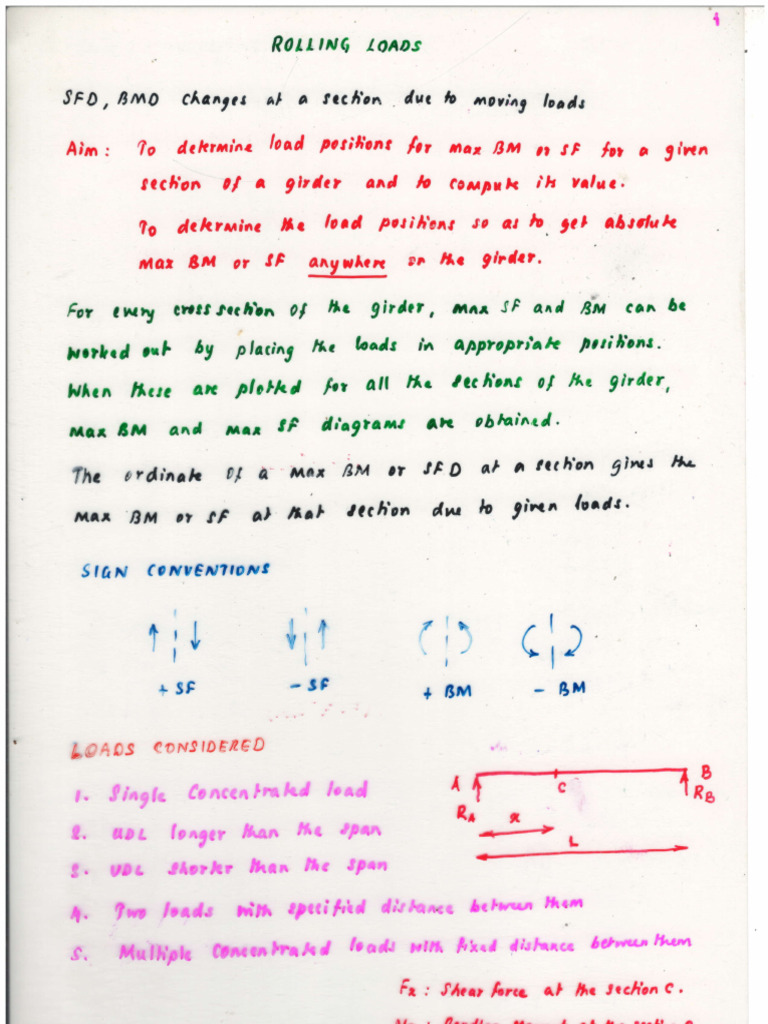 1
ROLLING LOADS
SFD, BMD changes at a section due to moving loads
Aim: To determine load positions for max BM or SF for a given
section of a girder and to compute its value.
To determine the load positions so as to get absolute
max BM or SF anywhere on the girder.
For every cross section of the girder, max SF and BM can be
worked out by placing the loads in appropriate positions.
When these are plotted for all the sections of the girder,
max BM and max SF diagrams are obtained.
The ordinate of a max BM or SFD at a section gives the
max BM or SF at that section due to given loads.
SIGN CONVENTIONS
+ SF - SF + BM - BM
LOADS CONSIDERED
1. Single Concentrated load
2. UDL longer than the span
3. UDL shorter than the span
A C B
RA x RB
L
4. Two loads with specified distance between them
5. Multiple Concentrated loads with fixed distance between them
Fx : Shear force at the section C.